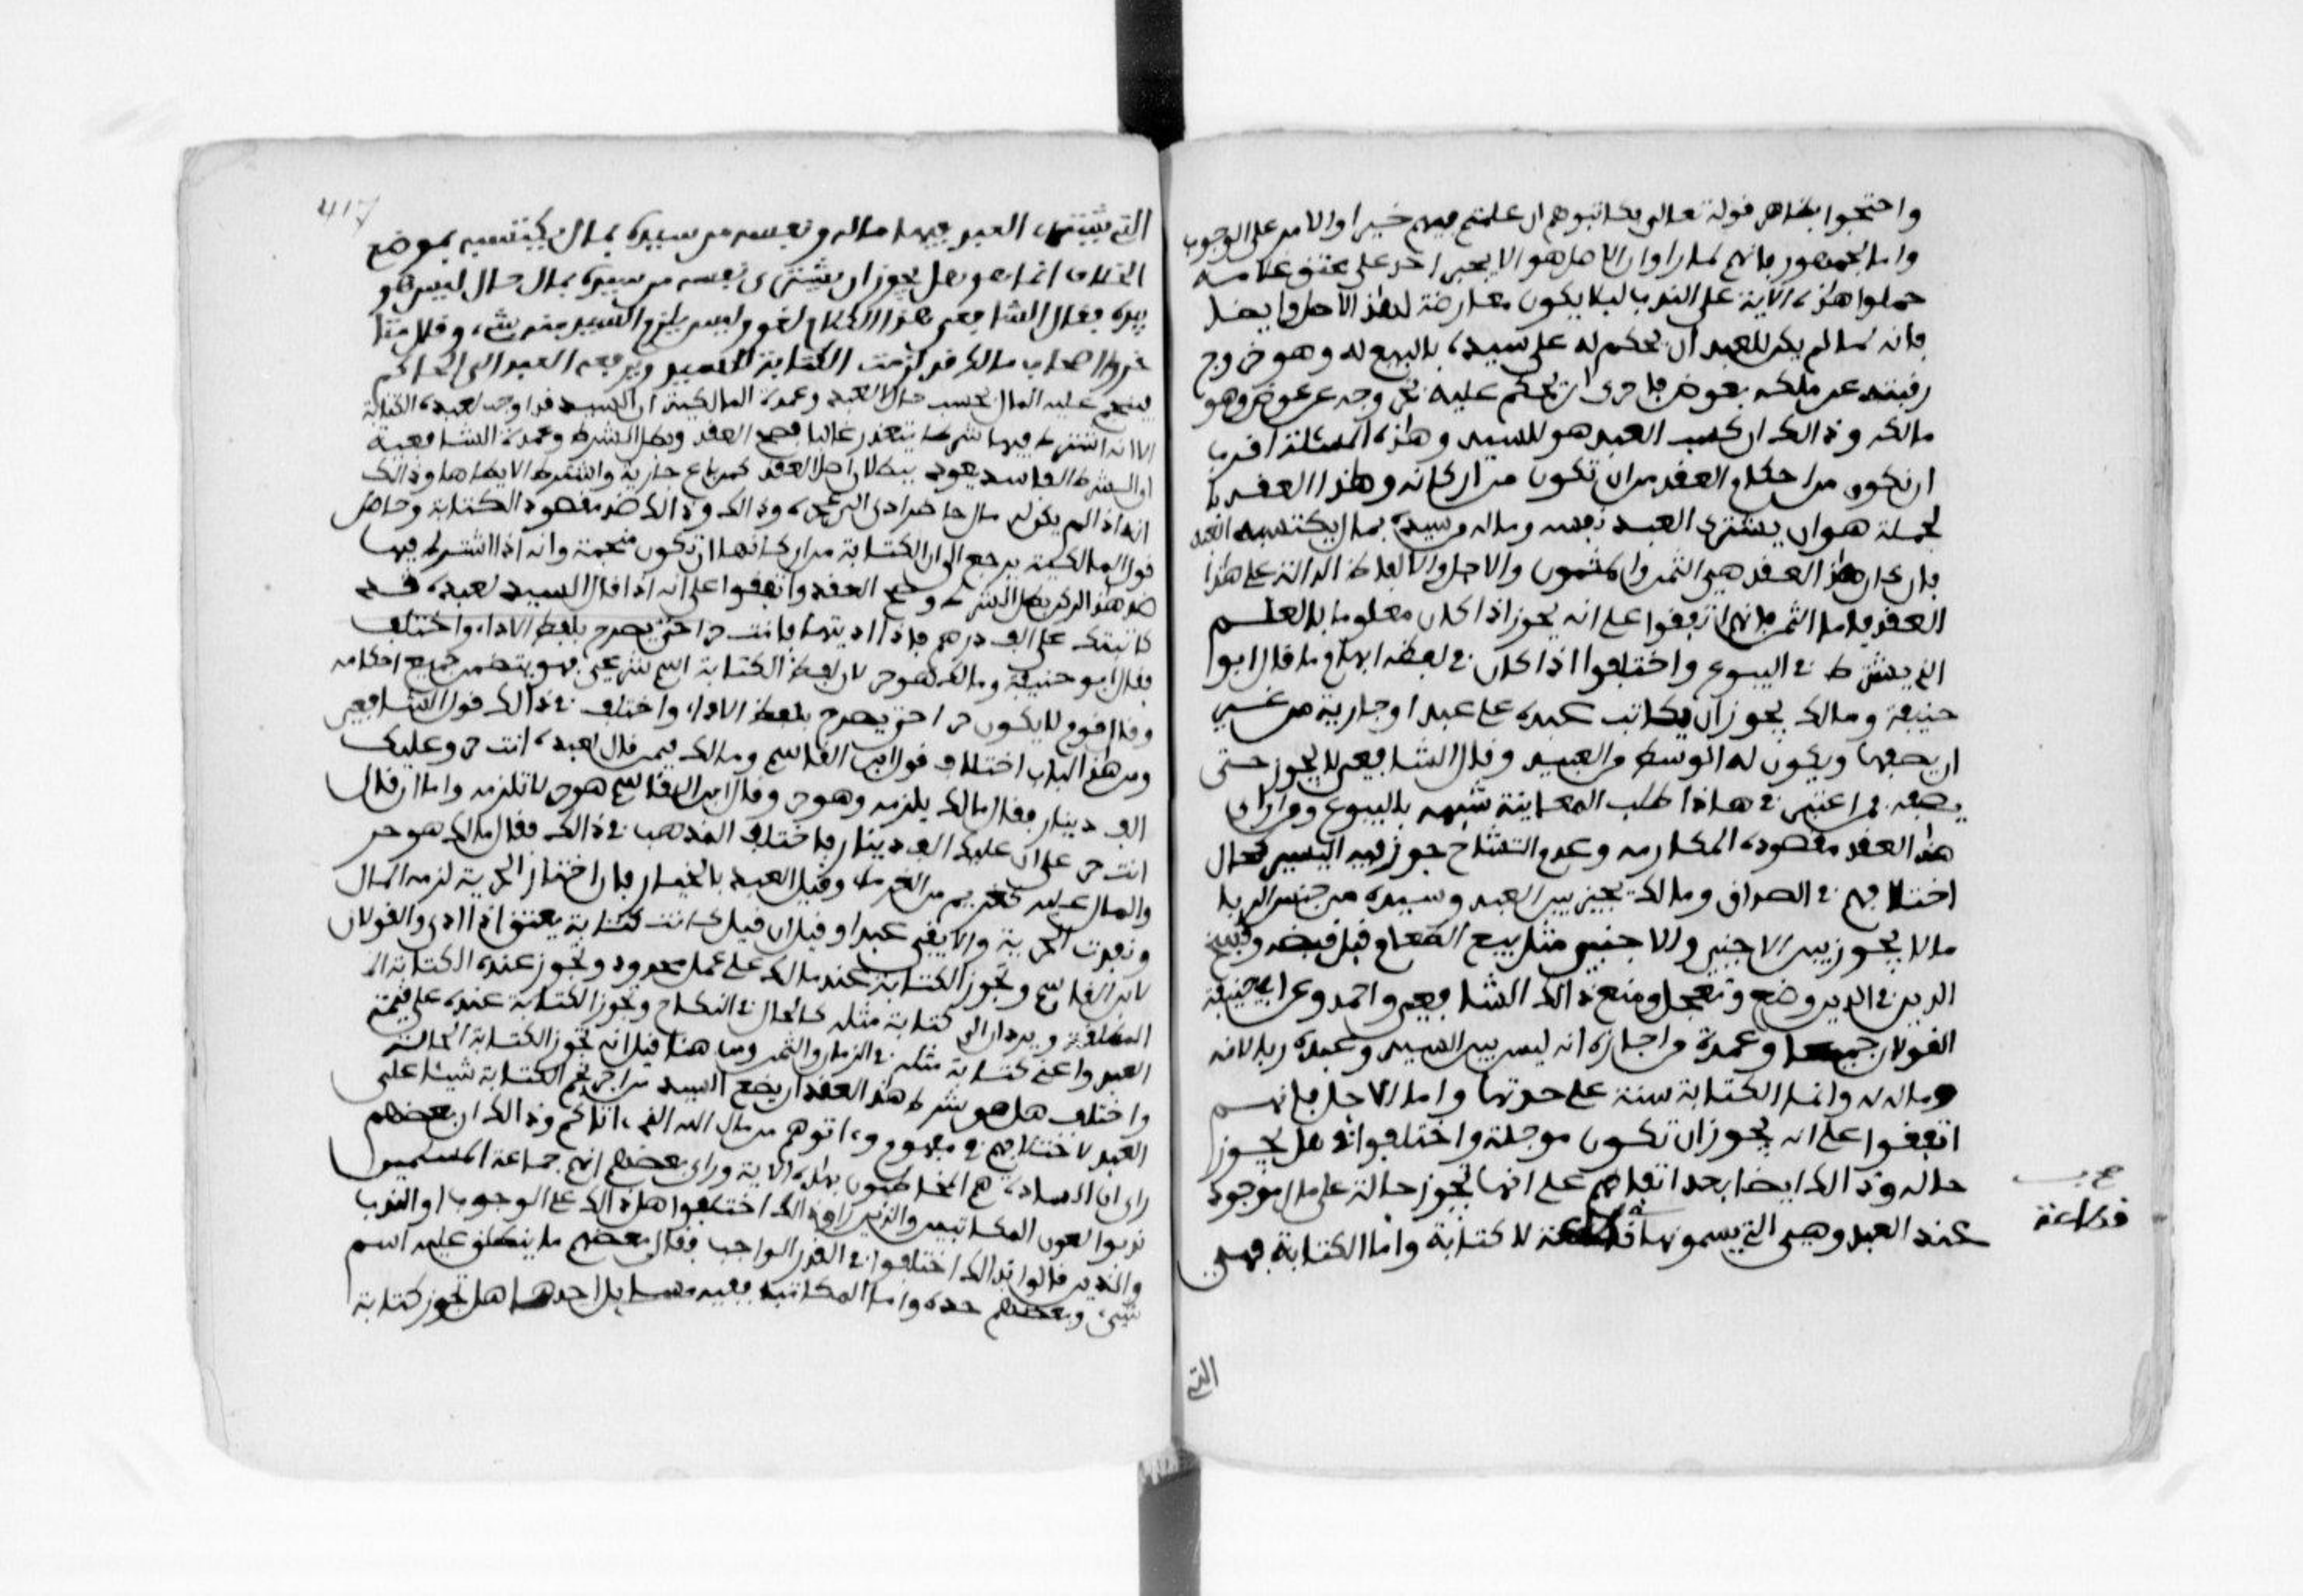 واحتجوا بظاهر قوله تعالى فكاتبوهم ان علمتم فيهم خيرا والامر على الوجوب
واما الجمهور فانهم لما راوا ان الاصل هو الا يجبر احد على عتق غلامه
حملوا هذه الاية على الندب ليلا يكون معارضة لهذا الاصل وايضا
فانه لما لم يكن للعبد ان يحكم له على سيده بالبيع له وهو خروج
رقبته عن ملكه بعوض فاحرى ان يحكم عليه في وجه عن عوض وهو
مالكه وذالك ان كسب العبد هو للسيد وهذه المسئلة اقرب
ان تكون من احكام العقد من ان تكون من اركانه وهذا العقد با
لجملة هو ان يشتري العبد نفسه وماله من سيده بمال يكتسبه العبد
فاركان هذا العقد هي الثمن والمثمون والاجل والالفاظ الدالة على هذا
العقد فاما الثمن فانهم اتفقوا على انه يجوز اذا كان معلوما بالعلم
الذي يشترط في البيوع واختلفوا اذا كان في لفظه ابهام ما فقال ابوا
حنيفة ومالك يجوز ان يكاتب عبده على عبد او جارية من غير
ان يصفها ويكون له الوسط من العبيد وقال الشافعي لا يجوز حتى
يصفه فمن اعتبر في هذا طلب المعاينة شبهه بالبيوع ومن راى ان
هذا العقد مقصوده المكارمه وعدم التشاح جوز فيه اليسير كحال
اختلافهم في الصداق ومالك يجيز بين العبد وسيده من جنس الربا
مالا يجوز بين الاجنبي والاجنبي مثل بيع الطعام قبل قبضه وفسخ
الدين في الدين وضع وتعجل ومنع ذالك الشافعي واحمد وعن ابي حنيفة
القولان جميعا وعمدة من اجازه انه ليس بين السيد وعبده ربا لانه
وماله له وانما الكتابة سنة على حدتها واما الاجل فانهم
اتفقوا على انه يجوز ان تكون موجلة واختلفوا في هل يجوز
حاله وذالك ايضا بعد اتفاقهم على انها تجوز حالة على مال موجود
عند العبد وهي التي يسمونها قطاعة لا كتابة واما الكتابة فهي
قطاعة
التي
417
التي يشتري العبد فيها ماله ونفسه من سيده بمال يكتسبه بموضع
الخلاف انما هو هل يجوز ان يشتري نفسه من سيده بمال حال ليس هو
بيده فقال الشافعي هذا الكلام لغو وليس يلزم السيد منه شيء وقال متا
خروا اصحاب مالك قد لزمت الكتابة للسيد ويرفعه العبد الى الحاكم
فينجم عليه المال بحسب حال العبد وعمدة المالكية ان السيد قد اوجب لعبده الكتابة
الا انه اشترط فيها شرطا يتعذر غالبا فصح العقد وبطل الشرط وعمدة الشافعية
ان الشرط الفاسد يعود ببطلان اصل العقد كمن باع جارية واشترط الا يطاها وذالك
انه اذا لم يكن له مال حاضر ادى الى عجزه وذالك ضد مقصود الكتابة وحاصل
قول المالكية يرجع الى ان الكتابة من اركانها ان تكون منجمة وانه اذا اشترط فيها
ضد هذا الركن بطل الشرط وصح العقد واتفقوا على انه اذا قال السيد لعبده قد
كاتبتك على الف درهم فاذا اديتها فانت حر انه اذا اداها حر
فقال ابو حنيفة ومالك هو حر لان لفظ الكتابة اسم شرعي فهو يتضمن جميع احكامه
وقال قوم لا يكون حرا حتى يصرح بلفظ الاداء واختلف في ذالك قول الشافعي
ومن هذا الباب اختلاف قول ابن القاسم ومالك فيمن قال لعبده انت حر وعليك
الف دينار فقال مالك يلزمه وهو حر وقال ابن القاسم هو حر لا تلزمه واما ان قال
انت حر على ان عليك الف دينار فاختلف المذهب في ذالك فقال مالك هو حر
والمال عليه كغريم من الغرماء وقيل العبد بالخيار فان اختار الحرية لزمه المال
ونفذت الحرية والا بقي عبدا وقيل ان قبل كانت كتابة يعتق اذا ادى والقولان
لابن القاسم وتجوز الكتابة عند مالك على عمل محدود وتجوز عنده الكتابة الم
المطلقة ويرد الى كتابة مثله كالحال في النكاح وتجوز الكتابة عنده على قيمة
العبد اعني كتابة مثله في الزمان والثمن ومن هنا قيل انه تجوز الكتابة الحالة
واختلف هل هو شرط هذا العقد ان يضع السيد من اخر نجم الكتابة شيئا على
العبد لاختلافهم في مفهوم واتوهم من مال الله الذي اتاكم وذالك ان بعضهم
راى ان السادة هم المخاطبون بهذه الاية وراى بعضهم انهم جماعة المسلمين
ندبوا لعون المكاتبين والذين راوا ذالك اختلفوا هل ذالك على الوجوب او الندب
والذين قالوا بذالك اختلفوا في القدر الواجب فقال بعضهم ما ينطلق عليه اسم
شيء وبعضهم حده واما المكاتب ففيه مسايل احدها هل تجوز كتابة